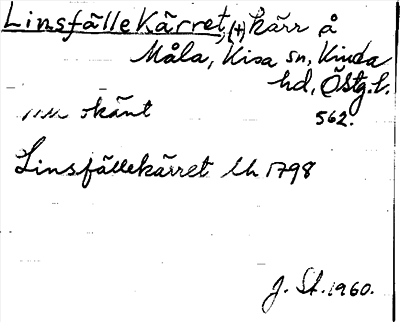 Linsfällekärret, (†) kärr å
Måla, Kisa sn, Kinda
hd, Östg.l.
nu okänt 562.
Linsfällekärret Lh 1798
J. St. 1960.